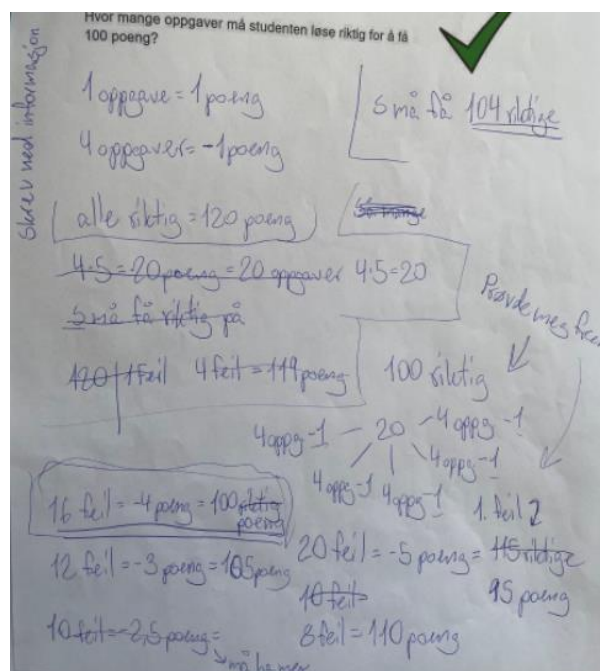 Hvor mange oppgaver må studenten løse riktig for å få
100 poeng?
Skrev ned informasjon
1 oppgave = 1 poeng
4 oppgaver = -1 poeng
S må få 104 riktige
alle riktig = 120 poeng
Så mange
4·5 = 20 poeng = 20 oppgaver 4·5=20
S må få riktig på
Prøvde meg frem
120 1 feil 4 feil = 119 poeng
100 riktig
4 oppg -1 20 4 oppg -1
4 oppg -1
4 oppg -1 4 oppg -1
1. feil
16 feil = -4 poeng = 100 riktig
poeng
20 feil = -5 poeng = 115 riktige
95 poeng
12 feil = -3 poeng = 105 poeng
10 feil
10 feil = -2,5 poeng =
8 feil = 110 poeng
må ha mer